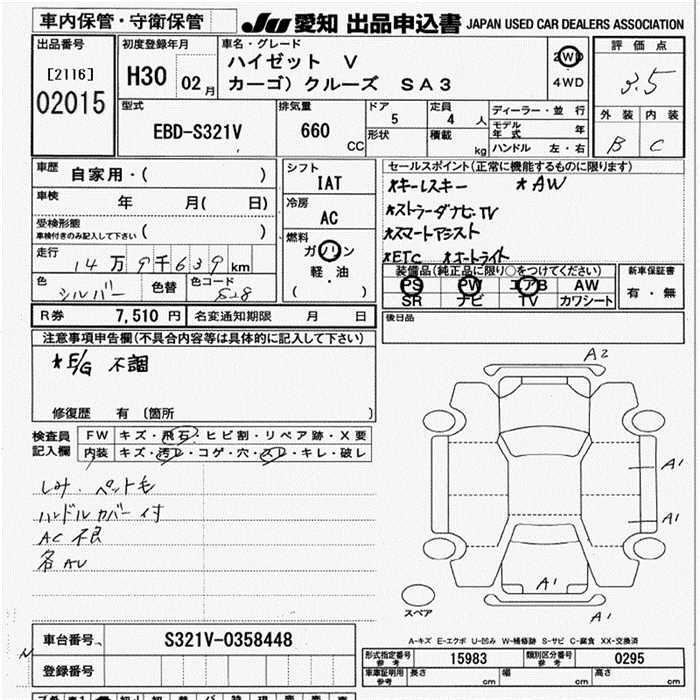 車内保管・守衛保管
JU 愛知 出品申込書 JAPAN USED CAR DEALERS ASSOCIATION
出品番号
[2116]
02015
初度登録年月
H30 02月
車名・グレード
ハイゼット V
カーゴ) クルーズ SA3
2WD
4WD
評価点
3.5
外装 内装
B C
型式
EBD-S321V
排気量
660 CC
ドア
5
形状
定員
4 人
積載
kg
ディーラー・並行
モデル年式 年
ハンドル 左・右
車歴
自家用・( )
車検
年 月( 日)
受検形態
車検付きのみ記入して下さい ( )
走行
14万9千639km
色
シルバー
色替
色コード
S28
シフト
IAT
冷房
AC
燃料
ガソリン
軽・油
( )
セールスポイント(正常に機能するものに限ります)
*キーレスキー *AW
*ストラーダナビ.TV
*スマートアシスト
*ETC *オートライト
装備品(純正品に限り○をつけてください)
PS PW エアB AW
SR ナビ TV カワシート
新車保証書
有・無
R券 7,510円 名変通知期限 月 日
後日品
注意事項申告欄(不具合内容等は具体的に記入して下さい)
*E/G 不調
修復歴 有 (箇所 )
検査員記入欄
FW キズ・飛石・ヒビ割・リペア跡・X要
内装 キズ・汚レ・コゲ・穴・スレ・キレ・破レ
しみ・ペット毛
ハンドルカバー付
AC不良
各AU
A2
A1
A1
A1
A1
スペア
A-キズ E-エクボ U-凹み W-補修跡 S-サビ C-腐食 XX-交換済
車台番号 S321V-0358448
登録番号
形式指定番号 参考 15983 類別区分番号 参考 0295
車庫証明用 参考 長さ cm 幅 cm 高さ cm